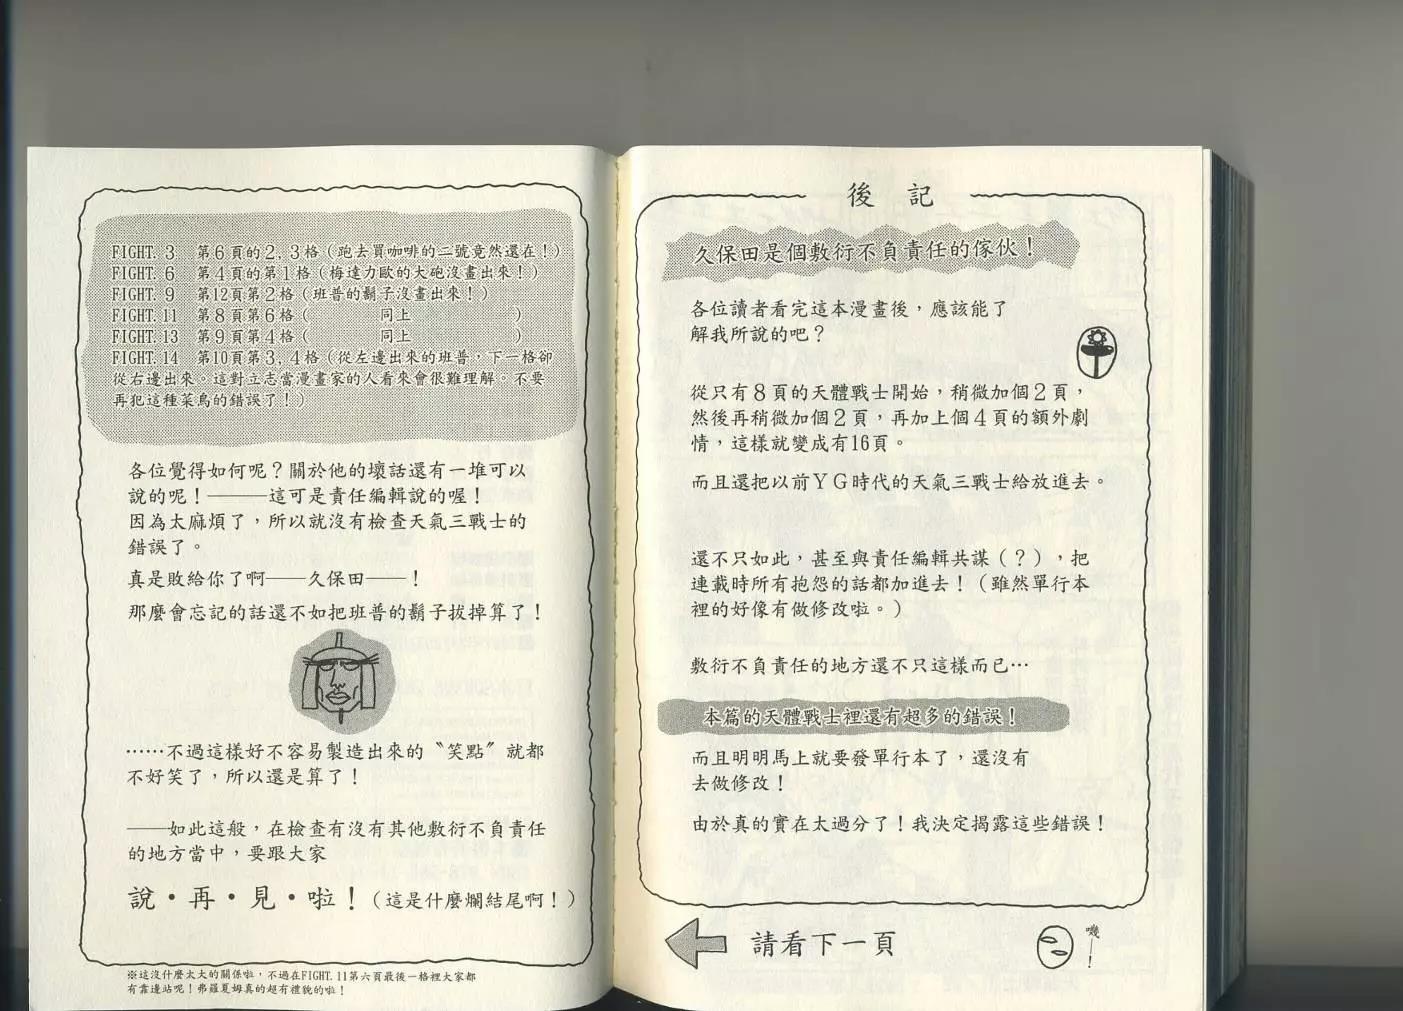 後記
久保田是個敷衍不負責任的傢伙！
各位讀者看完這本漫畫後，應該能了
解我所說的吧？
從只有８頁的天體戰士開始，稍微加個２頁，
然後再稍微加個２頁，再加上個４頁的額外劇
情，這樣就變成有16頁。
而且還把以前ＹＧ時代的天氣三戰士給放進去。
還不只如此，甚至與責任編輯共謀（？），把
連載時所有抱怨的話都加進去！（雖然單行本
裡的好像有做修改啦。）
敷衍不負責任的地方還不只這樣而已…
本篇的天體戰士裡還有超多的錯誤！
而且明明馬上就要發單行本了，還沒有
去做修改！
由於真的實在太過分了！我決定揭露這些錯誤！
請看下一頁
嘰—！
FIGHT. 3　第６頁的２, ３格（跑去買咖啡的二號竟然還在！）
FIGHT. 6　第４頁的第１格（梅達力歐的大砲沒畫出來！）
FIGHT. 9　第12頁第２格（班普的鬍子沒畫出來！）
FIGHT. 11　第８頁第６格（　　　同上　　　）
FIGHT. 13　第９頁第４格（　　　同上　　　）
FIGHT. 14　第10頁第３, ４格（從左邊出來的班普，下一格卻
從右邊出來。這對立志當漫畫家的人看來會很難理解。不要
再犯這種菜鳥的錯誤了！）
各位覺得如何呢？關於他的壞話還有一堆可以
說的呢！———這可是責任編輯說的喔！
因為太麻煩了，所以就沒有檢查天氣三戰士的
錯誤了。
真是敗給你了啊——久保田——！
那麼會忘記的話還不如把班普的鬍子拔掉算了！
……不過這樣好不容易製造出來的〝笑點〞就都
不好笑了，所以還是算了！
——如此這般，在檢查有沒有其他敷衍不負責任
的地方當中，要跟大家
說・再・見・啦！（這是什麼爛結尾啊！）
※這沒什麼太大的關係啦，不過在FIGHT. 11第六頁最後一格裡大家都
有靠邊站呢！弗羅夏姆真的超有禮貌的啦！